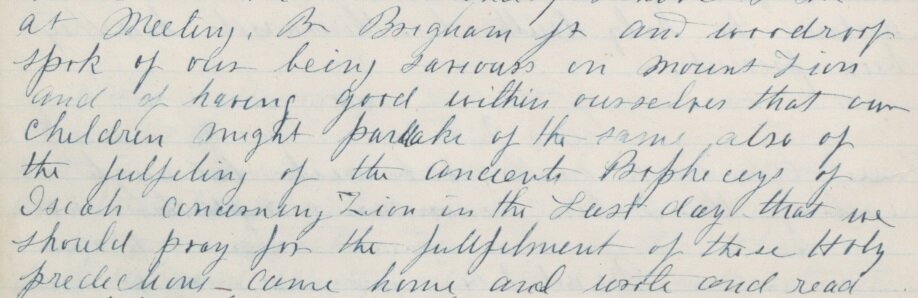 at Meeting, B Brigham Jr and woodroof
spok of our being Saviours on mount Zion
and of having good within ourselves that our
children might partake of the same also of
the fulfeling of the ancients Propheceys of
Isiah concerning Zion in the Last day that we
should pray for the fullfilment of these Holy
predections - came home and wrote and read